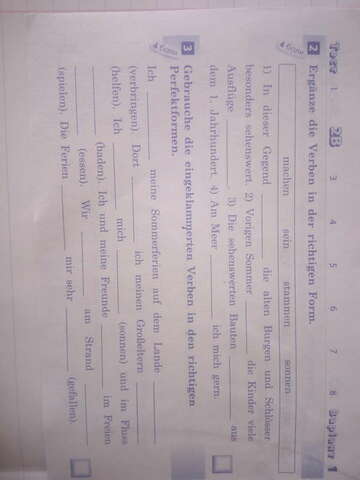 Test 1 2B 3 4 5 6 7 8 Варіант 1
2 Ergänze die Verben in der richtigen Form.
4 бали
machen sein stammen sonnen
1) In dieser Gegend ______ die alten Burgen und Schlösser
besonders sehenswert. 2) Vorigen Sommer ______ die Kinder viele
Ausflüge ______. 3) Die sehenswerten Bauten ______ aus
dem 1. Jahrhundert. 4) Am Meer ______ ich mich gern.
3 Gebrauche die eingeklammerten Verben in den richtigen
4 бали
Perfektformen.
Ich ______ meine Sommerferien auf dem Lande ______
(verbringen). Dort ______ ich meinen Großeltern ______
(helfen). Ich ______ mich ______ (sonnen) und im Fluss
______ (baden). Ich und meine Freunde ______ im Freien
______ (essen). Wir ______ am Strand ______
(spielen). Die Ferien ______ mir sehr ______ (gefallen).